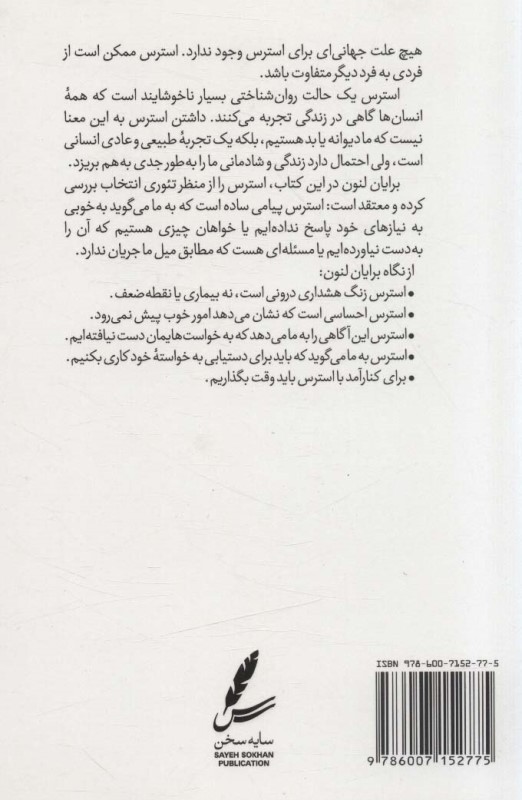 هیچ علت جهانی‌ای برای استرس وجود ندارد. استرس ممکن است از
فردی به فرد دیگر متفاوت باشد.
استرس یک حالت روان‌شناختی بسیار ناخوشایند است که همهٔ
انسان‌ها گاهی در زندگی تجربه می‌کنند. داشتن استرس به این معنا
نیست که ما دیوانه یا بد هستیم، بلکه یک تجربهٔ طبیعی و عادی انسانی
است، ولی احتمال دارد زندگی و شادمانی ما را به‌طور جدی به‌هم بریزد.
برایان لنون در این کتاب، استرس را از منظر تئوری انتخاب بررسی
کرده و معتقد است: استرس پیامی ساده است که به ما می‌گوید به‌خوبی
به نیازهای خود پاسخ نداده‌ایم یا خواهان چیزی هستیم که آن را
به‌دست نیاورده‌ایم یا مسئله‌ای هست که مطابق میل ما جریان ندارد.
از نگاه برایان لنون:
• استرس زنگ هشداری درونی است، نه بیماری یا نقطه‌ضعف.
• استرس احساسی است که نشان می‌دهد امور خوب پیش نمی‌رود.
• استرس این آگاهی را به ما می‌دهد که به خواست‌هایمان دست نیافته‌ایم.
• استرس به ما می‌گوید که باید برای دستیابی به خواستهٔ خود کاری بکنیم.
• برای کنار آمد با استرس باید وقت بگذاریم.
ISBN 978-600-7152-77-5
9 786007 152775
سایه سخن
SAYEH SOKHAN
PUBLICATION